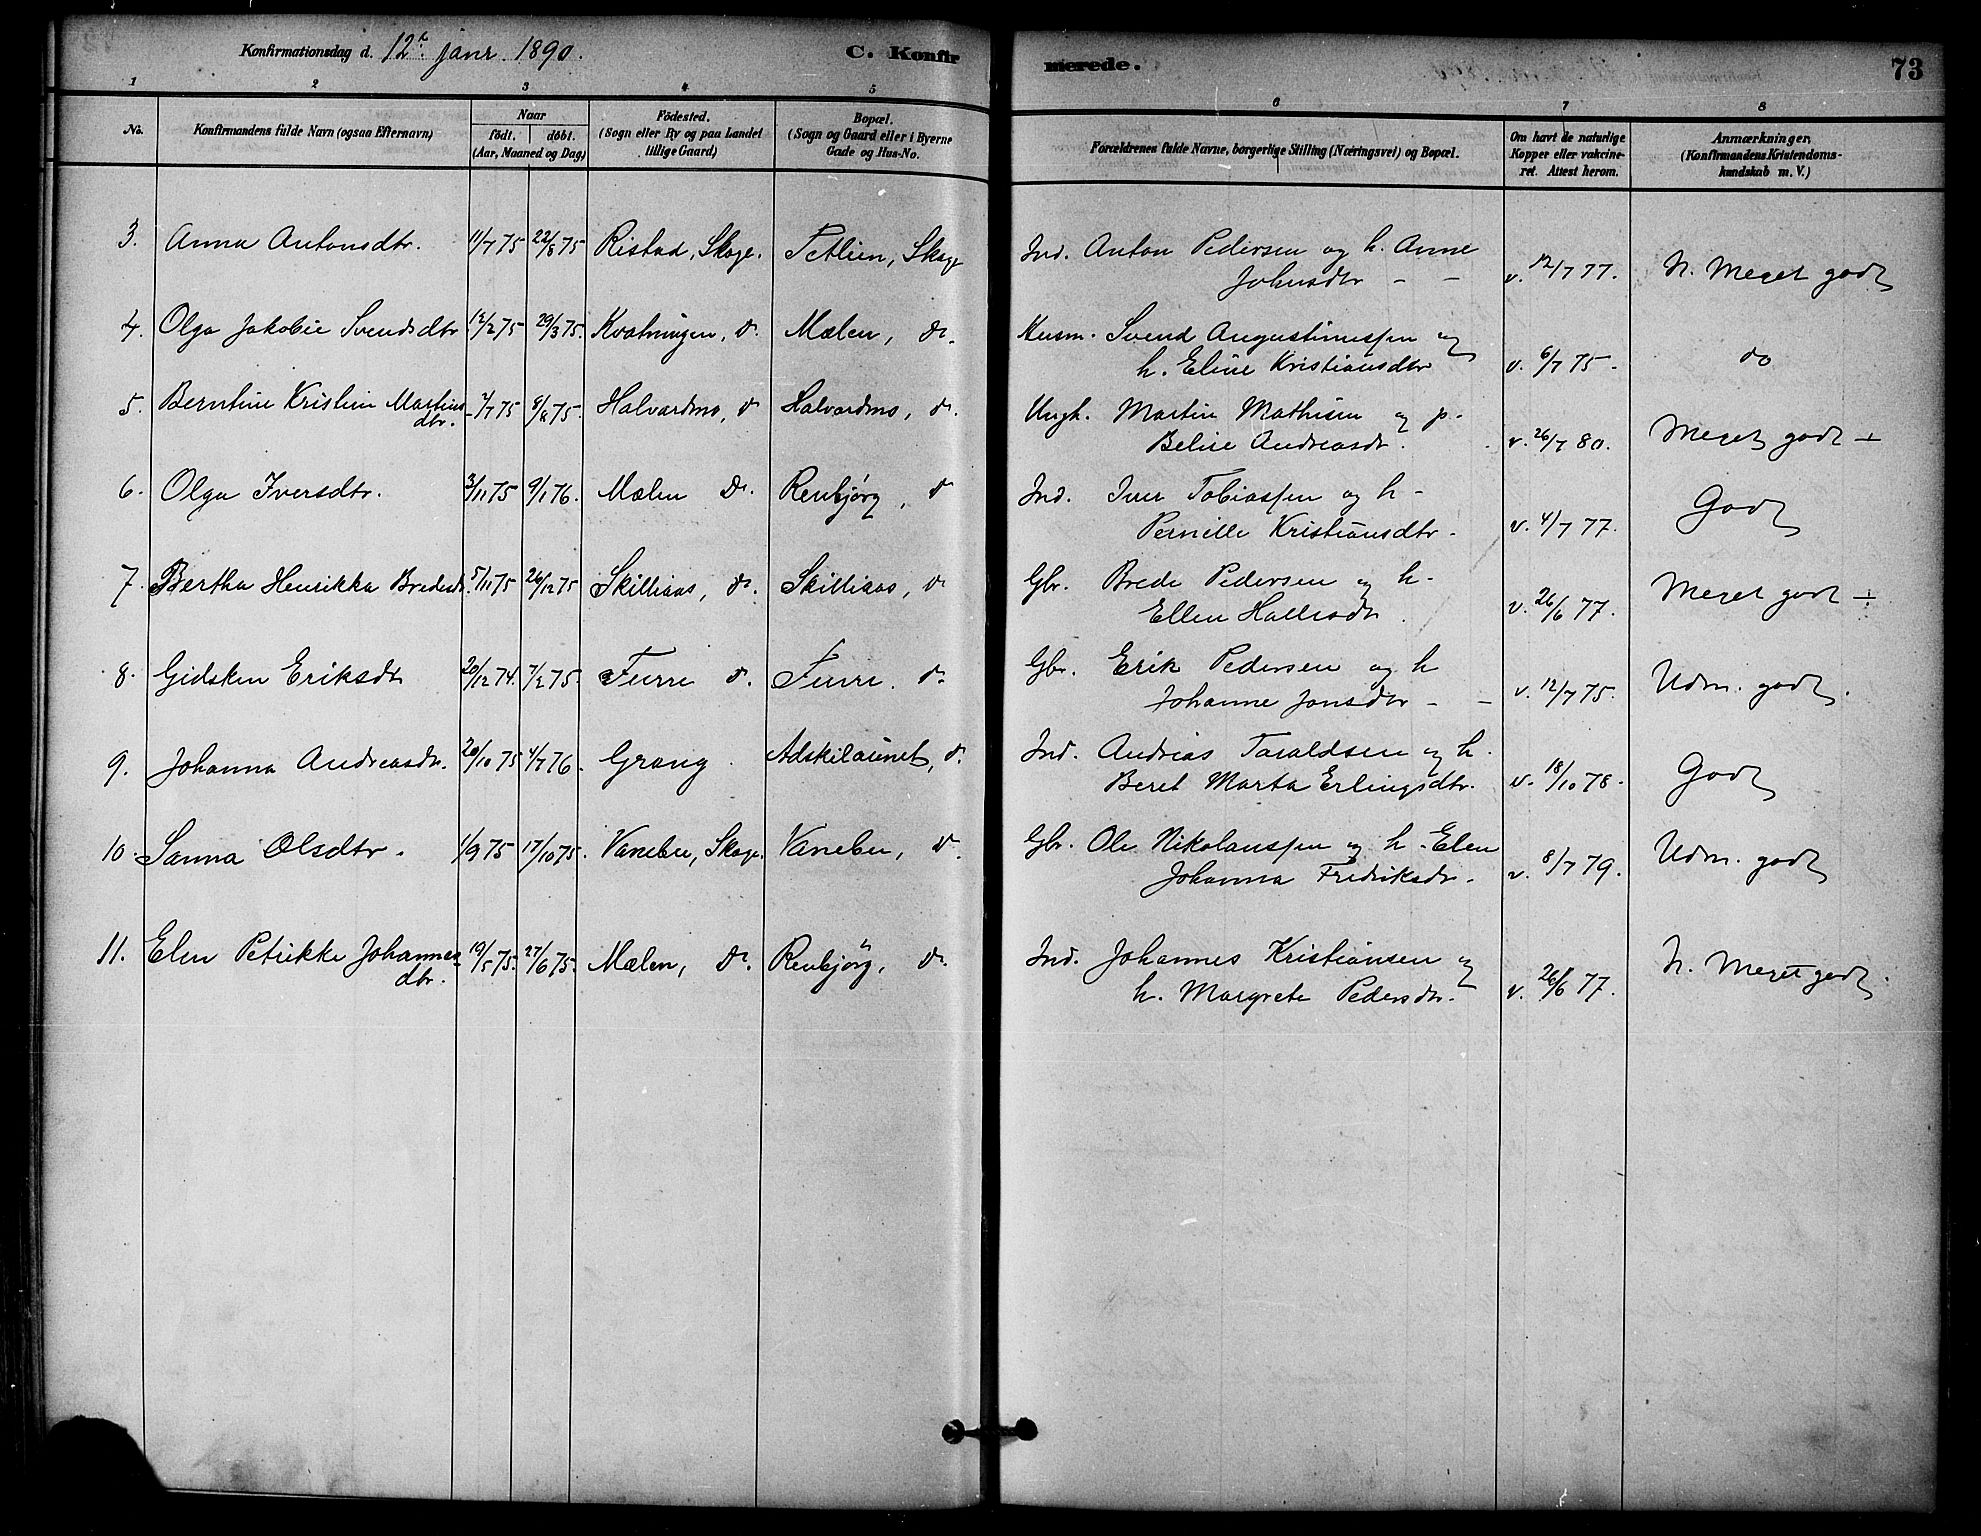 Konfirmationsdag d. 12te janr. 1890.
C. Konfir
merede.
73
1 2 3 4 5 6 7 8
No.
Konfirmandens fulde Navn (ogsaa Efternavn)
Naar
födt. döbt.
(Aar, Maaned og Dag)
Födested.
(Sogn eller By og paa Landet
tillige Gaard)
Bopæl.
(Sogn og Gaard eller i Byerne
Gade og Hus-No.
Forældrenes fulde Navne, borgerlige Stilling (Næringsvei) og Bopæl.
Om havt de naturlige
Kopper eller vakcine-
ret. Attest herom.
Anmærkninger,
(Konfirmandens Kristendoms-
kundskab m. V.)
3. Anna Antonsdtr. 11/7 75 22/8 75 Ristad, Skage. Tetlien, Skage Ind. Anton Pedersen og h. Anne
Johnsdtr - - v. 12/7 77. N. Meget godt
4. Olga Jakobie Svendsdtr 12/2 75 29/3 75. Kvatningen, do. Mælen, do. Husm. Svend Augustinussen og
h. Eline Kristiansdtr v. 6/7 75. do
5. Berntine Kristine Martins
dtr. 7/7 75 8/8 75. Halvardmo, do Halvardmo, do. Ungk. Martin Mathisen og p.
Beline Andreasdr. v. 26/7 80. Meget godt ÷
6. Olga Iversdtr. 3/11 75 9/1 76. Mælen do. Renbjørg, do Ind. Iver Tobiassen og h -
Pernille Kristiansdtr. v. 4/7 77. Godt
7. Bertha Henrikka Bredesdtr. 5/11 75 26/12 75 Skilliaas, do. Skilliaas, do Gbr. Brede Pedersen og h -
Ellen Hallesdr. v. 26/6 77. Meget godt ÷
8. Gidsken Eriksdr 20/12 74. 7/2 75. Furre do. Furre. do Gbr. Erik Pedersen og h
Johanne Jonsdtr - - v. 12/7 75. Udm. godt.
9. Johanna Andreasdr. 20/10 75 4/7 76. Grong. Adskilaunet, do. Ind. Andreas Taraldsen og h.
Beret Marta Erlingsdtr. v. 18/10 78. Godt
10. Sanna Olsdtr. 1/9 75 17/10 75. Vanebu, Skage. Vanebu, do. Gbr. Ole Nikolaussen og h. Elen
Johanna Fredriksdr. v. 8/7 79. Udm. godt
11. Elen Petrikke Johannes
dtr. 19/5 75. 27/6 75. Mælen, do. Renbjørg, do. Ind. Johannes Kristiansen og
h. Margrete Pedersdr. v. 26/6 77. N. Meget godt.